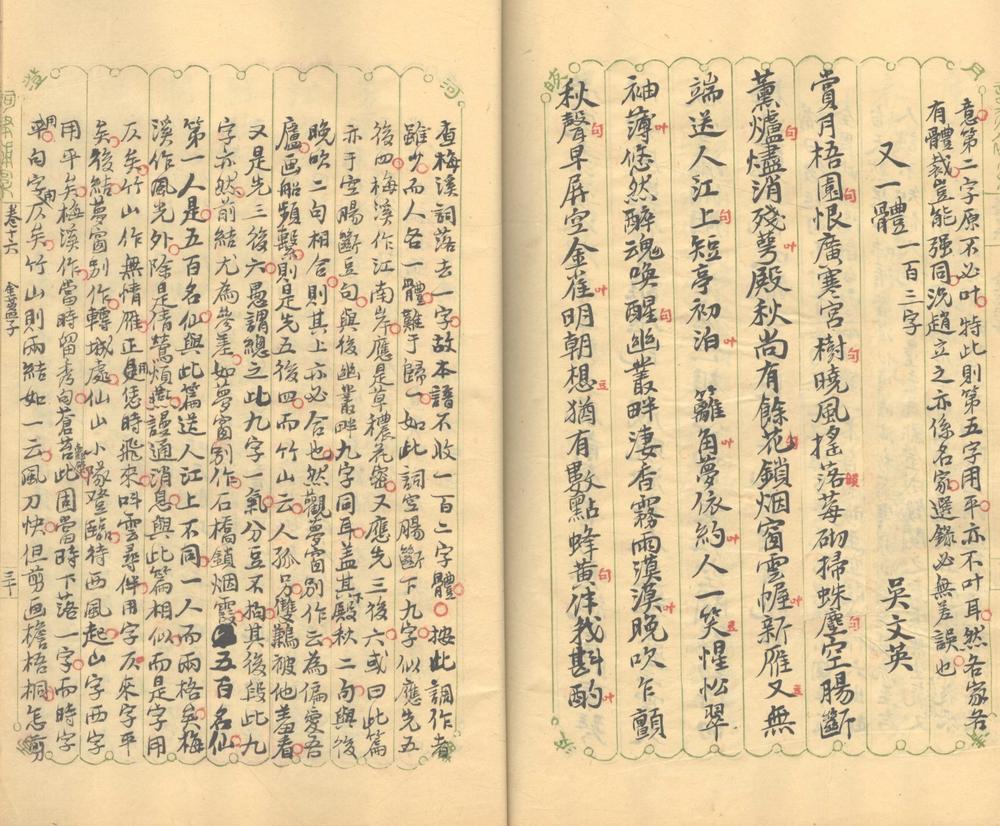 意第二字原不必叶特此則第五字用平亦不叶耳然各家各
有體裁豈能强同洗趙立之亦係名家選錄必無差誤也
又一體 一百三字
吳文英
賞月梧園恨廣寒宮樹曉風搖落莓砌掃蛛塵空腸斷
薰爐燼消殘萼殿秋尚有餘花鎖烟窗雲幄新雁又無
端送人江上短亭初泊 籬角夢依約人一笑惺忪翠
袖薄悠然醉魂喚醒幽叢畔淒香霧雨漠漠晚吹乍顫
秋聲早屏空金雀明朝想猶有數點蜂黃伴我斟酌
查梅溪詞落去一字故本譜不收一百二字體按此調作者
雖少而人各一體難于歸一如此詞空腸斷下九字似應先五
後四梅溪作江南岸應是草穠花密又應先三後六或曰此篇
亦于空腸斷豆句與後幽叢畔九字同耳盖其殿秋二句與後
晚吹二句相合則其上亦必合也然觀夢窗別作云為偏愛吾
廬画船頻繫則是先五後四而竹山云人孤另雙鶼被他羞看
又是先三後六愚謂總之此九字一氣分豆不拘其後段此九
字亦然前結尤為參差如夢窗別作石橋鎖烟霞五百名仙
第一人是五百名仙與此篇送人江上不同一人而兩格矣梅
溪作風光外除是倩鶯煩燕謾通消息與此篇相似而是字用
仄矣竹山作無情雁正用恁時飛來叫雲尋伴用字仄來字平
矣後結夢窗別作轉城處仙山小隊登臨待西風起山字西字
用平矣梅溪作當時留秀句蒼苔此固當時下落一字而時字
用平句字用仄矣竹山則兩結如一云風刀快但剪画檐梧桐怎剪
卷十六 金盞子
三十